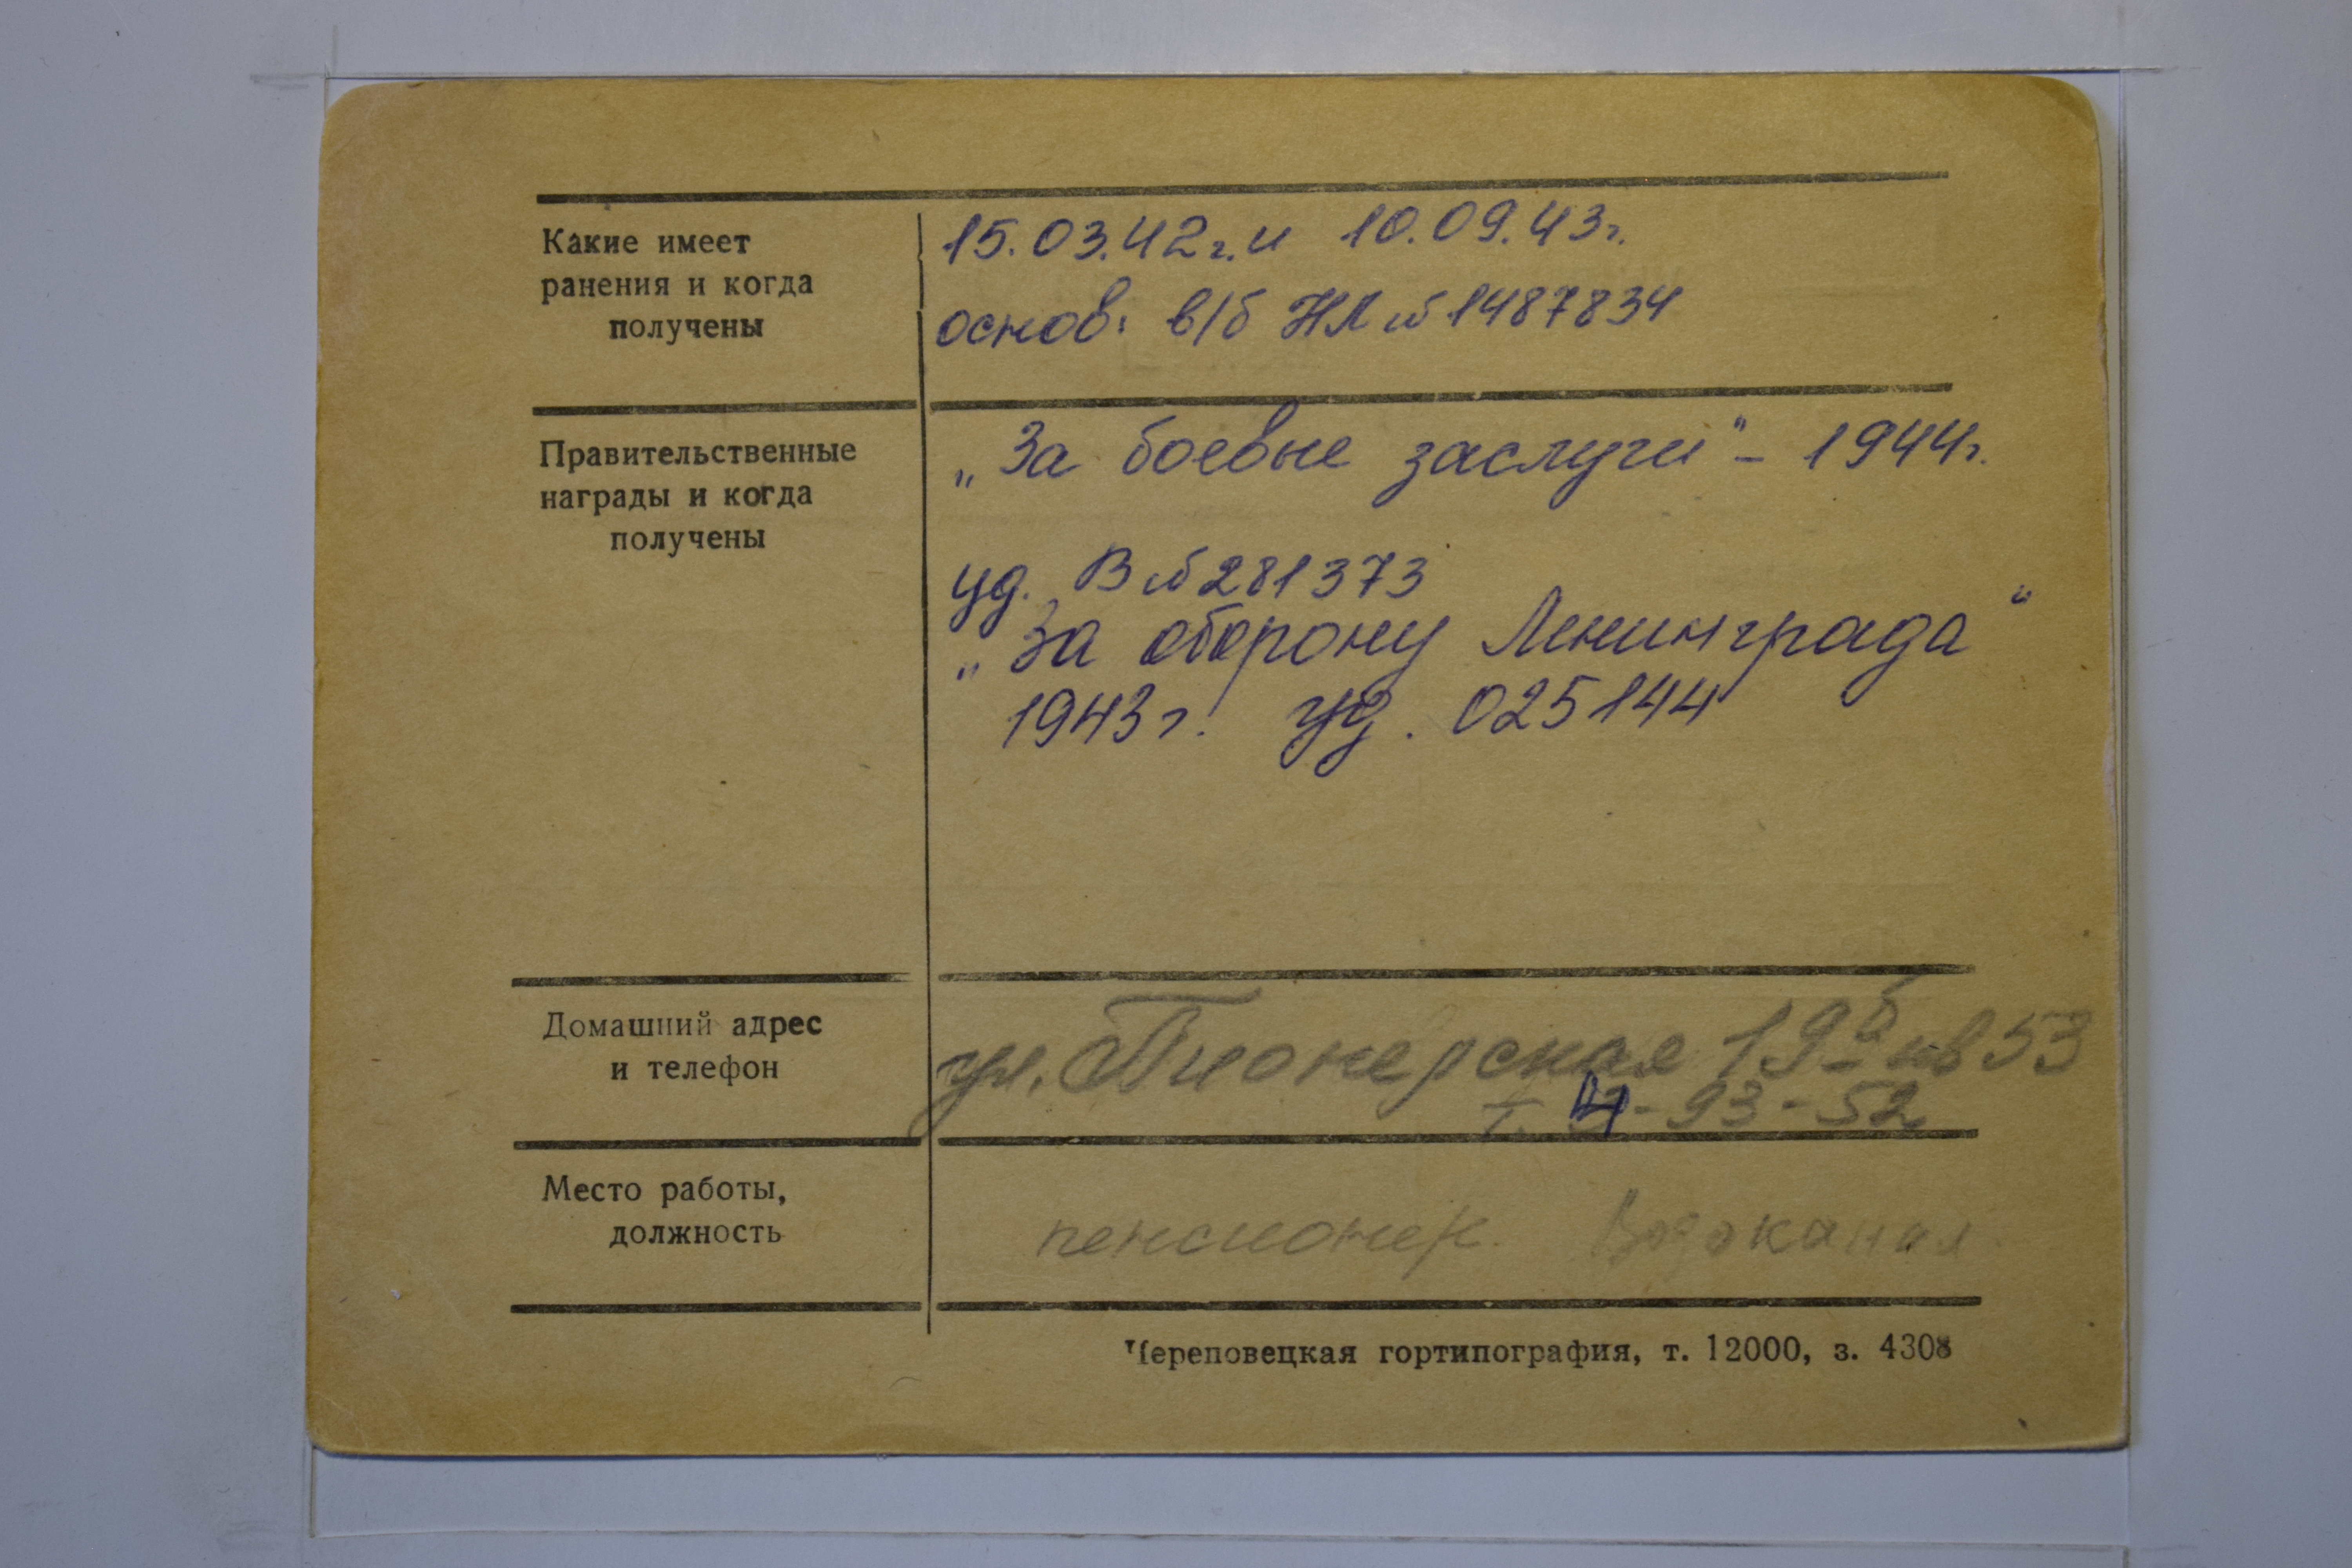 Какие имеет
ранения и когда
получены
15.03.42г. и 10.09.43г.
основ: в/б НЛ № 1487834
Правительственные
награды и когда
получены
„За боевые заслуги" - 1944г.
уд. В № 281373
„За оборону Ленинграда"
1943г. уд. 025144
Домашний адрес
и телефон
ул. Пионерская 19б кв 53
т. -93-52
Место работы,
должность
пенсионер. Водоканал
Череповецкая гортипография, т. 12000, з. 4308